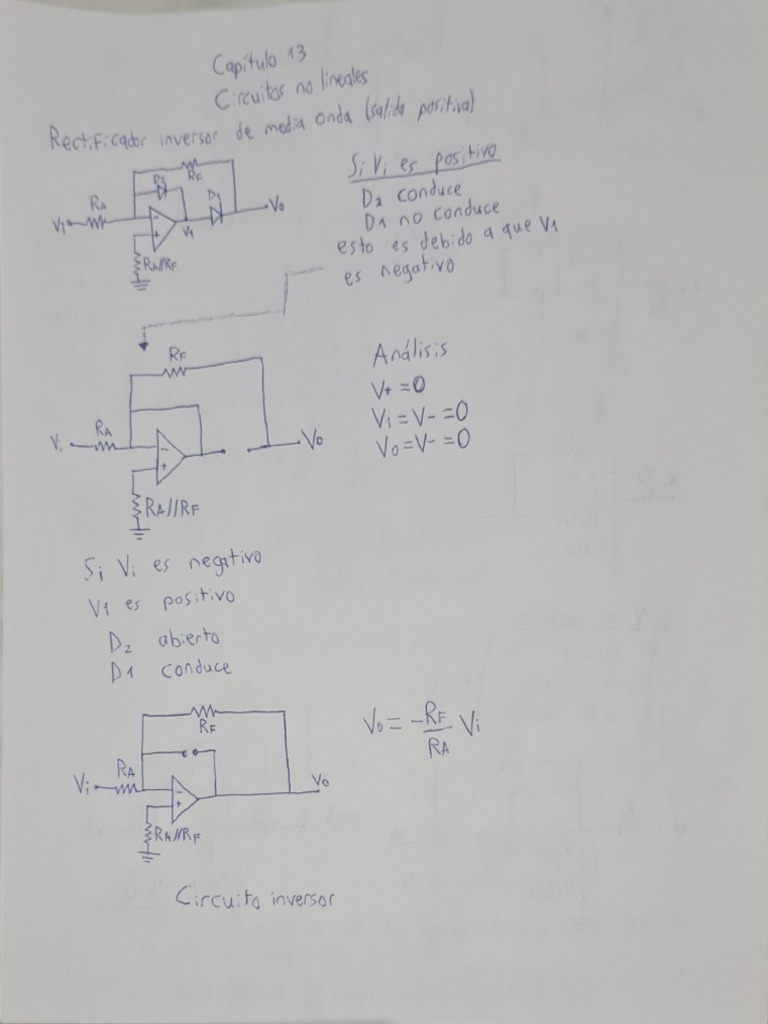 Capítulo 13
Circuitos no lineales
Rectificador inversor de media onda (salida positiva)
RF
D2
RA
D1
Vi
Vo
V1
-
+
RA//RF
Si Vi es positivo
D2 conduce
D1 no conduce
esto es debido a que V1
es negativo
RF
RA
Vi
Vo
-
+
RA//RF
Análisis
V+ = 0
V1 = V- = 0
Vo = V- = 0
Si Vi es negativo
V1 es positivo
D2 abierto
D1 conduce
RF
RA
Vi
Vo
-
+
RA//RF
Vo = -RF/RA Vi
Circuito inversor